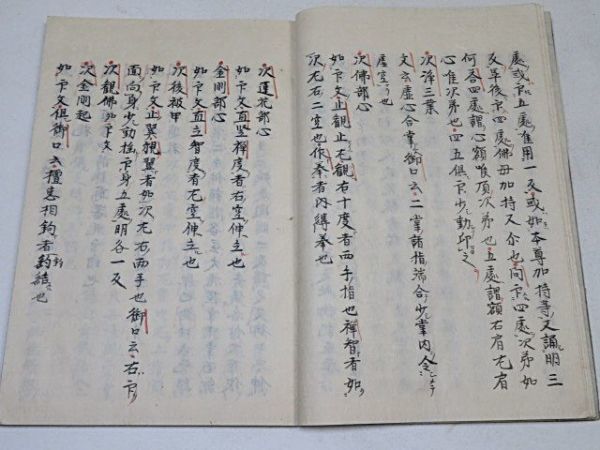 處或印五處進用一反或如本尊加持等又誦明三
反早後印四處佛母加持又介也問印四處次第如
何答四處謂心額喉頂次第也五處謂額右肩尤肩
心准次第也四五俱印少動印之
次淨三業
文云虛心合掌御口云二掌諸指端合少掌内令
虛空也
次佛部心
如下文止觀止尤觀右十度者兩手指也禪智者如
次尤右二空也作拳者内縛拳也
次蓮花部心
如下文直竪禪度者右空伸立也
金剛部心
如下文直立智度者尤空伸立也
次後被甲
如下文止翼觀翼者如次尤右兩手也御口云右印
面向身少動投印身五處明各一反
次觀佛如下文
次金剛起
如下文俱御口云檀惠相鉤者鉤結也